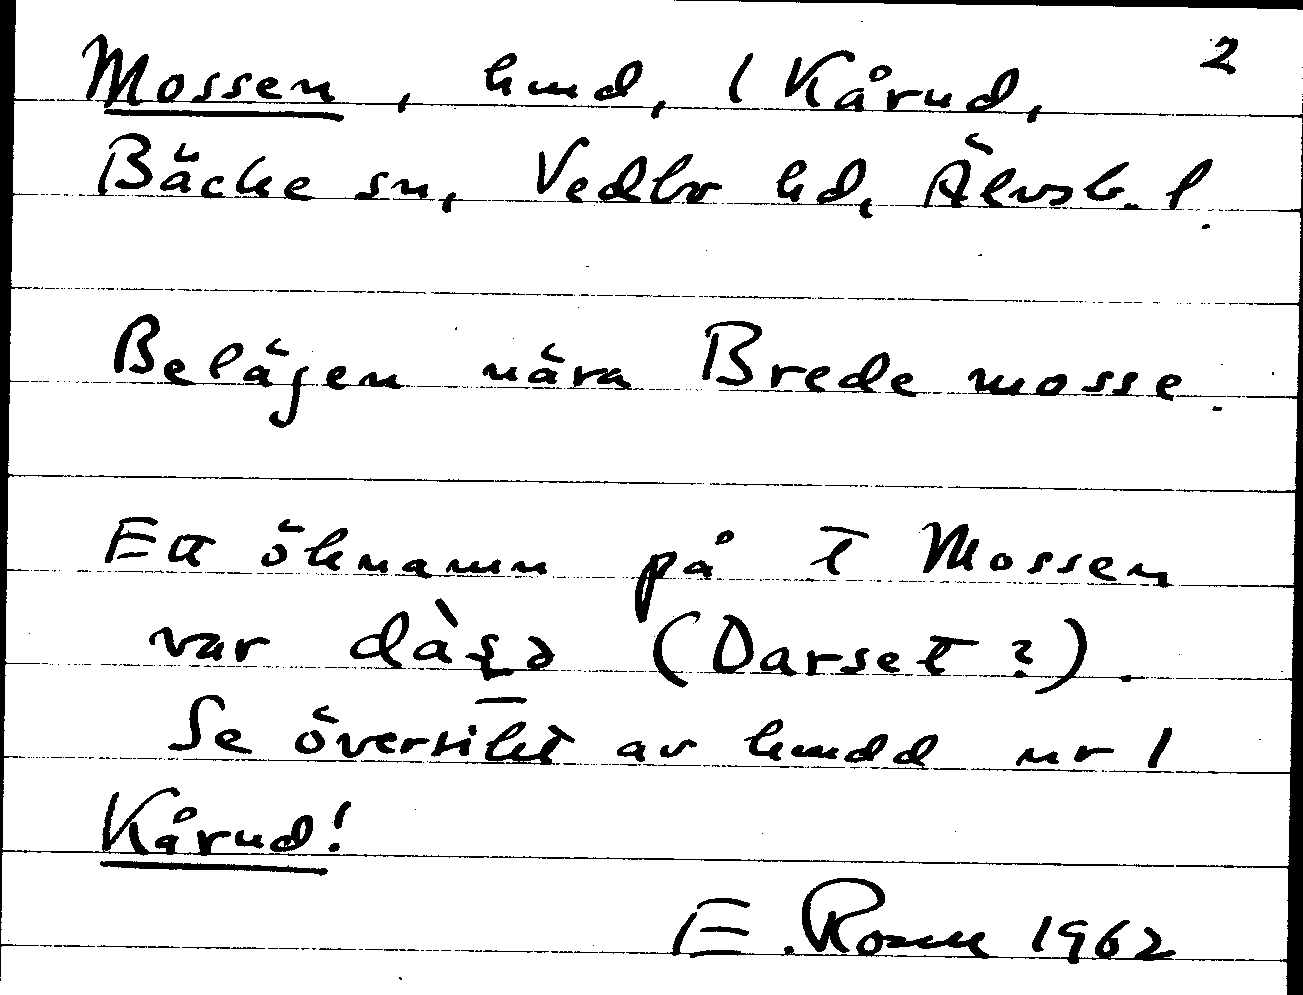 2
Mossen, hmd, 1 Kårud,
Bäcke sn, Vedbo hd, Älvsb. l.
Belägen nära Brede mosse.
Ett öknamn på t Mossen
var (Darset?).
Se översikt av hmdd nr 1
Kårud!
E. 1962